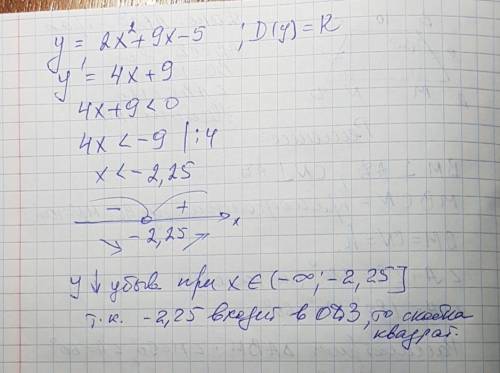 y = 2x²+9x-5 ; D(y)=R
y' = 4x+9
4x+9<0
4x<-9 |:4
x<-2,25
- + 
-2,25 x
y ↓ убыв при x ∈ (-∞; -2,25]
т.к. -2,25 входит в ОДЗ, то скобка
квадрат.